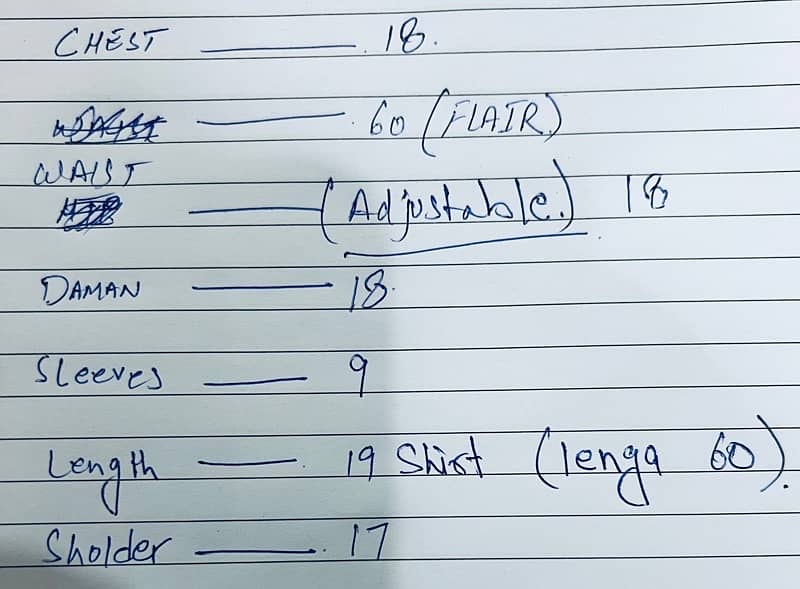 CHEST — 18.
— 60 (FLAIR)
WAIST
— (Adjustable.) 18
DAMAN — 18.
Sleeves — 9
Length — 19 Shirt (lenga 60).
Sholder — 17